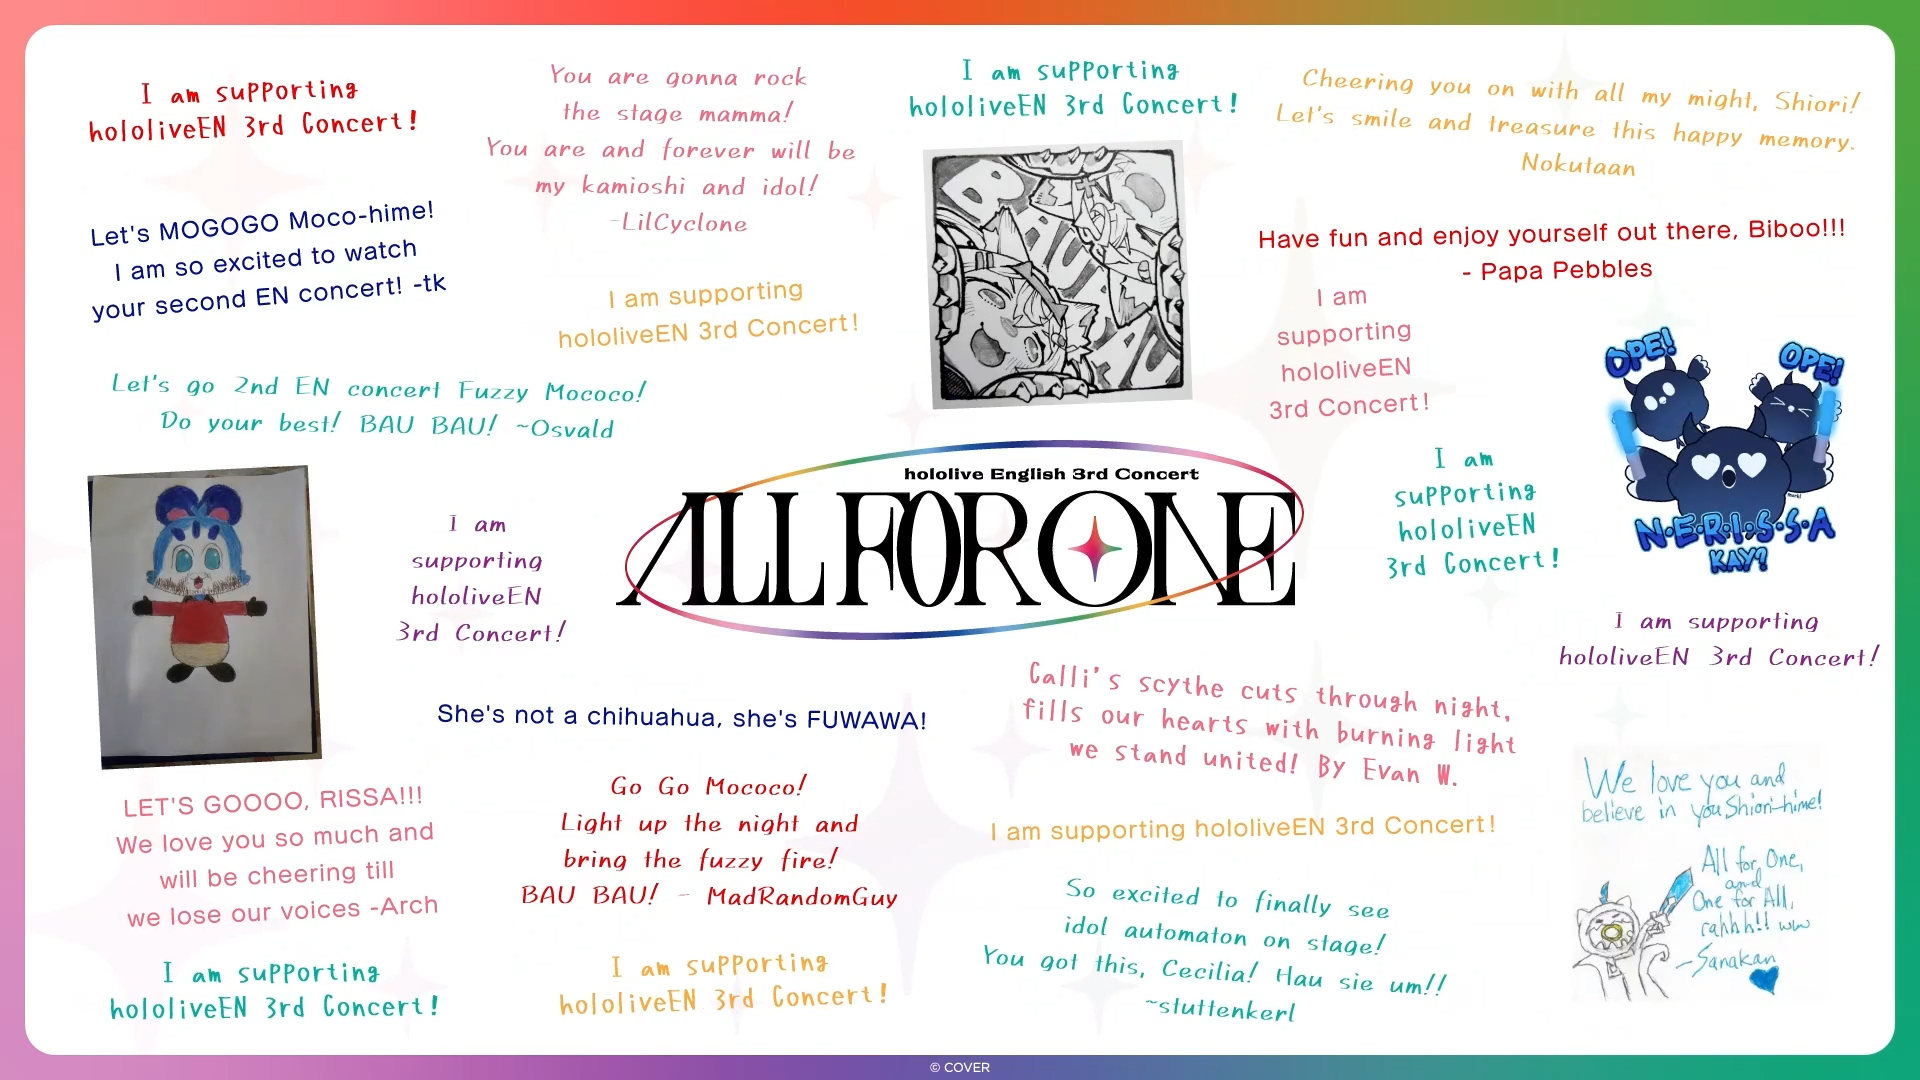 I am supporting
hololiveEN 3rd Concert!
You are gonna rock
the stage mamma!
You are and forever will be
my kamioshi and idol!
-LilCyclone
I am supporting
hololiveEN 3rd Concert!
Cheering you on with all my might, Shiori!
Let's smile and treasure this happy memory.
Nokutaan
Let's MOGOGO Moco-hime!
I am so excited to watch
your second EN concert! -tk
I am supporting
hololiveEN 3rd Concert!
BAU BAU
Have fun and enjoy yourself out there, Biboo!!!
- Papa Pebbles
I am
supporting
hololiveEN
3rd Concert!
OPE!
OPE!
N·E·R·I·S·S·A
KAY?
Let's go 2nd EN concert Fuzzy Mococo!
Do your best! BAU BAU! ~Osvald
I am
supporting
hololiveEN
3rd Concert!
hololive English 3rd Concert
ALL FOR ONE
I am
supporting
hololiveEN
3rd Concert!
I am supporting
hololiveEN 3rd Concert!
She's not a chihuahua, she's FUWAWA!
Calli's scythe cuts through night,
fills our hearts with burning light
we stand united! By Evan W.
LET'S GOOOO, RISSA!!!
We love you so much and
will be cheering till
we lose our voices -Arch
Go Go Mococo!
Light up the night and
bring the fuzzy fire!
BAU BAU! - MadRandomGuy
I am supporting hololiveEN 3rd Concert!
We love you and
believe in you Shiori-hime!
All for One,
and
One for All,
rahhh!! ww
-Sanakan
So excited to finally see
idol automaton on stage!
You got this, Cecilia! Hau sie um!!
~stuttenkerl
I am supporting
hololiveEN 3rd Concert!
I am supporting
hololiveEN 3rd Concert!
© COVER